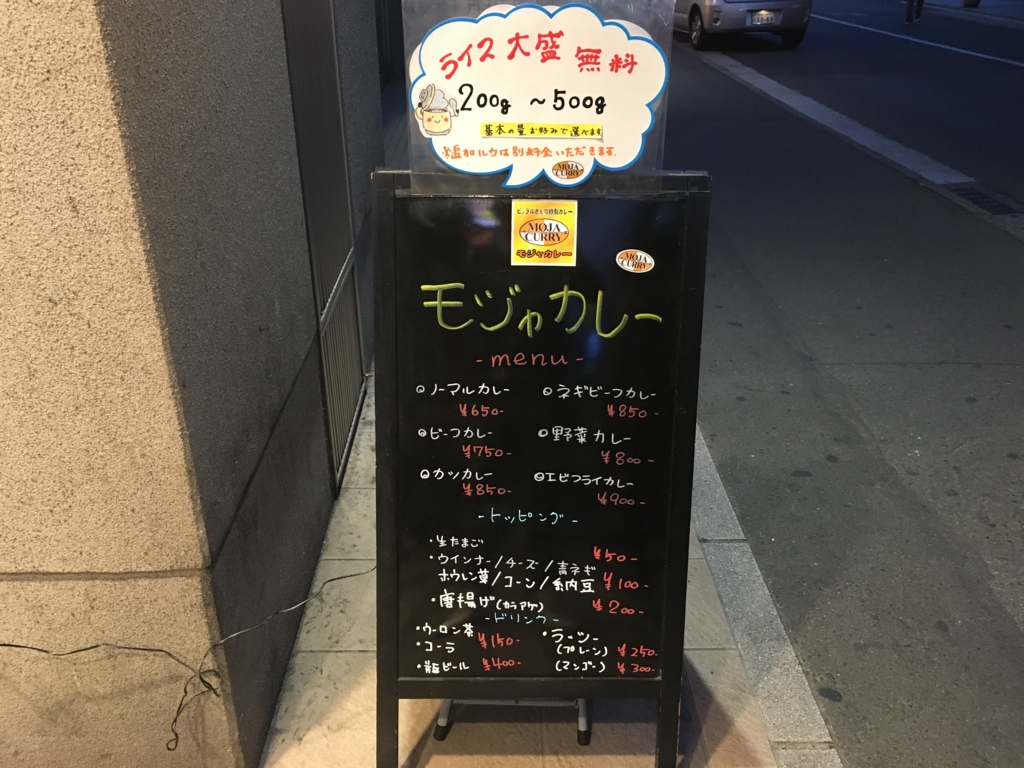 ライス大盛無料
200g ～500g
基本の量お好みで選べます
※追加ルウは別料金いただきます.
MOJA CURRY
MOJA
CURRY
モジャカレー
MOJA CURRY
モジャカレー
-menu-
ノーマルカレー ¥650-
ネギビーフカレー ¥850-
ビーフカレー ¥750-
野菜カレー ¥800-
カツカレー ¥850-
エビフライカレー ¥900-
-トッピング-
・生たまご ¥50-
・ウインナー/チーズ/青ネギ
ホウレン草/コーン/納豆 ¥100-
・唐揚げ(カラアゲ) ¥200-
-ドリンク-
・ウーロン茶
・コーラ ¥150-
・瓶ビール ¥400-
・ラッシー
(プレーン) ¥250-
(マンゴー) ¥300-